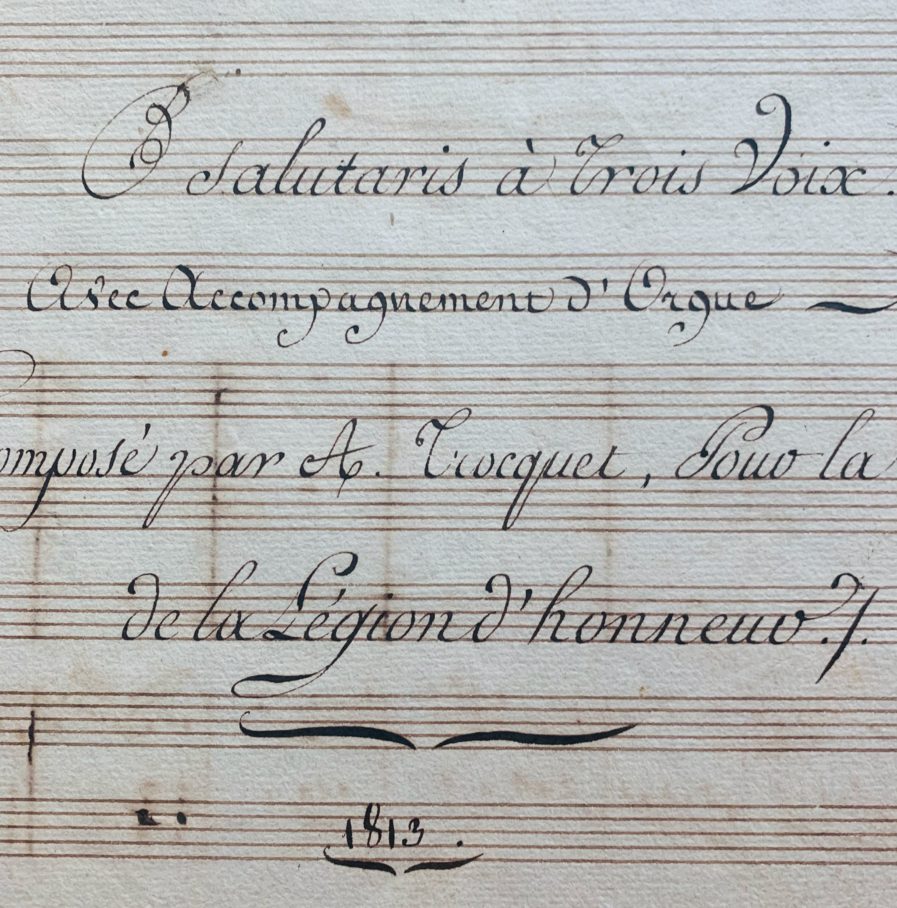 O salutaris à Trois Voix.
Avec Accompagnement d'Orgue
omposé par A. Trocquet, Pour la
de la Légion d'honneur./.
1813.